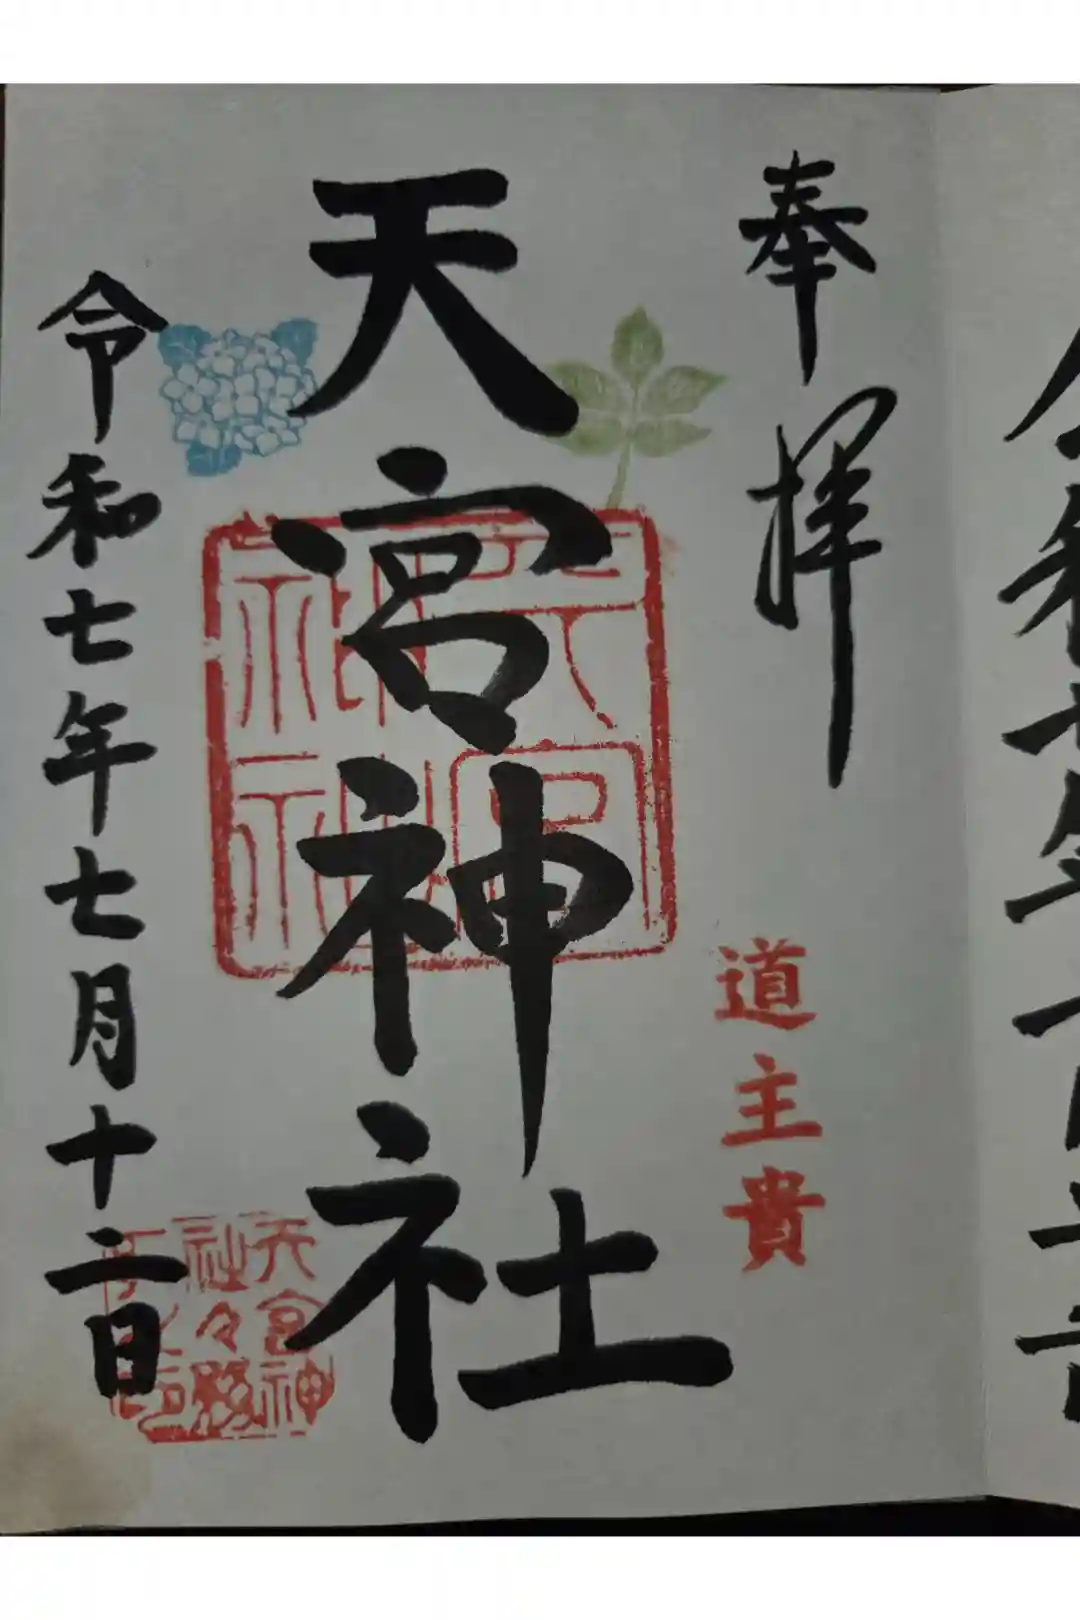 奉拝
道主貴
天宮神社
令和七年七月十二日
天宮神
社々務
所之印